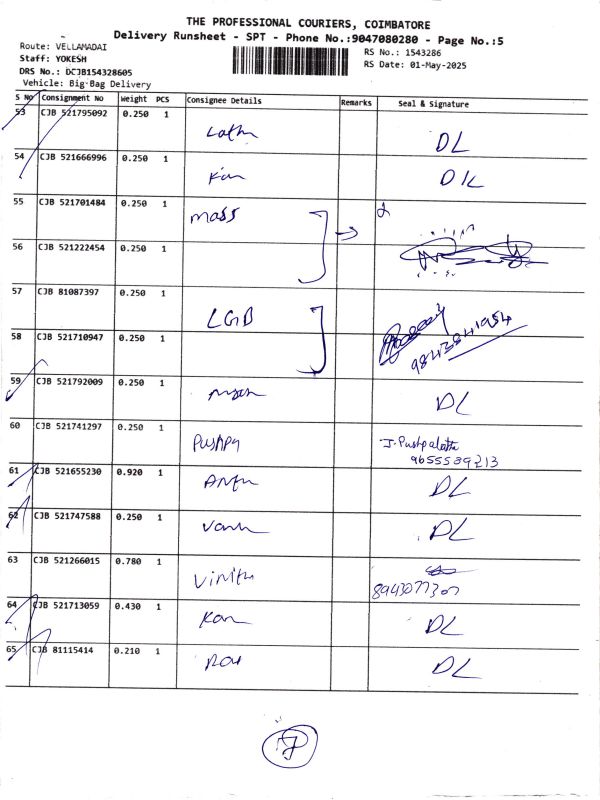 THE PROFESSIONAL COURIERS, COIMBATORE
Delivery Runsheet - SPT - Phone No.:9047080280 - Page No.:5
Route: VELLAMADAI
RS No.: 1543286
Staff: YOKESH
RS Date: 01-May-2025
DRS No.: DCJB154328605
Vehicle: Big-Bag Delivery
S No Consignment No Weight PCS Consignee Details Remarks Seal & Signature
53 CJB 521795092 0.250 1 DL
54 CJB 521666996 0.250 1
55 CJB 521701484 0.250 1 mass
56 CJB 521222454 0.250 1
57 CJB 81087397 0.250 1 LGB
58 CJB 521710947 0.250 1 9843841954
59 CJB 521792009 0.250 1 DL
60 CJB 521741297 0.250 1 PUSHPA J. Pushpalatha
9655539213
61 CJB 521655230 0.920 1 DL
62 CJB 521747588 0.250 1 DL
63 CJB 521266015 0.780 1
64 CJB 521713059 0.430 1 DL
65 CJB 81115414 0.210 1 DL